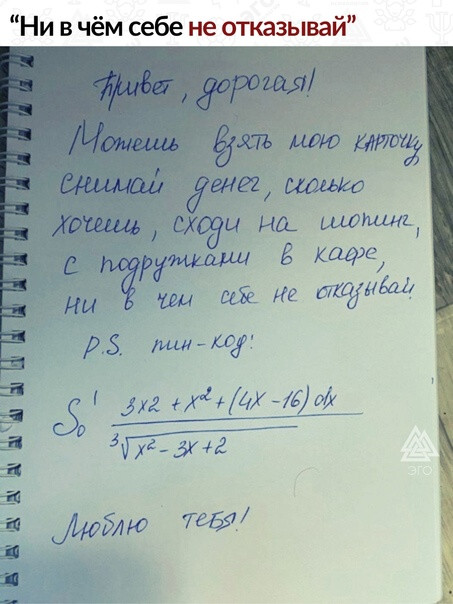 “Ни в чём себе не отказывай”
Привет, дорогая!
Можешь взять мою карточку
снимай денег, сколько
хочешь, сходи на шопинг,
с подружками в кафе,
ни в чем себе не отказывай
P.S. пин-код:
S₀¹ 3x2 + x² + (4x - 16) dx
³√x² - 3x + 2
Люблю тебя!
ЭГО